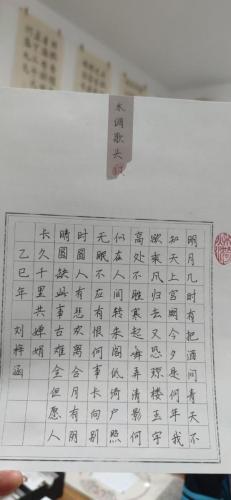 水调歌头
明月几时有把酒问青天不
知天上宫阙今夕是何年我
欲乘风归去又恐琼楼玉宇
高处不胜寒起舞弄清影何
似在人间转朱阁低绮户照
无眠不应有恨何事长向别
时圆人有悲欢离合月有阴
晴圆缺此事古难全但愿人
长久千里共婵娟
乙巳年 刘梓涵